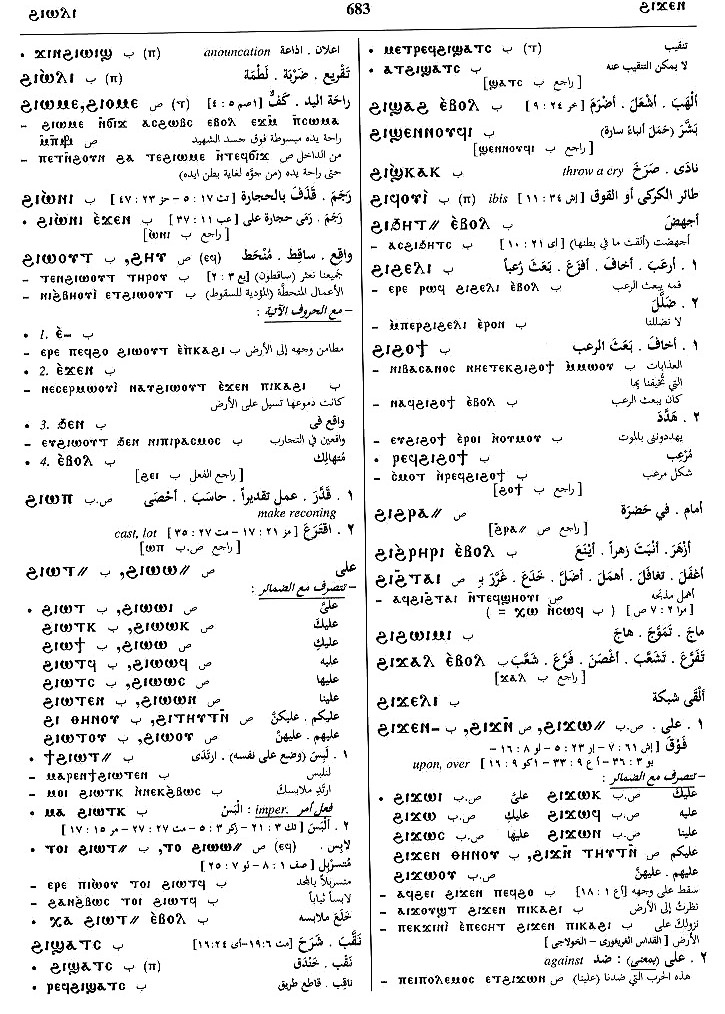 ϩⲓⲱⲗⲓ 683 ϩⲓϫⲉⲛ
• ϫⲓⲛϩⲓⲱⲓϣ ب (π) anouncation اعلان . اذاعة
ϩⲓⲱ̀ⲗⲓ ب (π) تَقْرِيع . ضَرْبَة . لَطْمَة
ϩⲓⲱⲙⲉ, ϩⲓⲟⲙⲉ ص (τ) راحَة اليد . كَفٌّ [١صم ٥ : ٤]
راحة يده مبسوطة فوق حسد الشهيد
من الداخل ص
حتى راحة يده (من جوَّه لغاية بطن ايده)
ϩⲓⲱ̀ⲛⲓ ب رَجَمَ . قَذَفَ بالحجارة [تث ١٧ : ٥ – حز ٢٣ : ٤٧]
• ϩⲓⲱ̀ⲛⲓ ⲉ̀ϫⲉⲛ ب رَجَمَ . رَمَى حجارة على [عب ١١ : ٣٧]
[راجع ب ⲱ̀ⲛⲓ]
ϩⲓⲱⲟⲩⲧ ب, ϩⲏⲧ ص (eq) واقِع . ساقِط . مُنْحَط
– ⲧⲉⲛϩⲓⲱⲟⲩⲧ ⲧⲏⲣⲟⲩ ب جميعنا نعثر (ساقطون) [يع ٣ : ٢]
– ⲛⲓϩ̀ⲃⲏⲟⲩⲓ̀ ⲉⲧϩⲓⲱⲟⲩⲧ ب الأعمال المنحطَّة (المؤدية للسقوط)
– مع الحروف الآتية :
• 1. ⲉ̀– ب
– ⲉⲣⲉ ⲡⲉϥϩⲟ ϩⲓⲱⲟⲩⲧ ⲉ̀ⲡⲕⲁϩⲓ ب مطامن وجهه إلى الأرض
• 2. ⲉ̀ϫⲉⲛ ب
– ⲛⲉⲥⲉⲣⲙⲱⲟⲩⲓ̀ ⲛⲁⲩϩⲓⲱⲟⲩⲧ ⲉ̀ϫⲉⲛ ⲡⲓⲕⲁϩⲓ ب
كانت دموعها تسيل على الأرض
• 3. ϧⲉⲛ ب واقع في
– ⲉⲩϩⲓⲱⲟⲩⲧ ϧⲉⲛ ⲛⲓⲡⲓⲣⲁⲥⲙⲟⲥ ب واقعين في التجارب
• 4. ⲉ̀ⲃⲟⲗ ب مُتهالِك
[راجع الفعل ب ϩⲉⲓ]
ϩⲓⲱⲡ ص.ب ١ . قَدَّرَ . عمل تقديراً . حاسَبَ . أحْصَى
make reconing
cast, lot ٢ . اقتَرَعَ [مز ٢١ : ١٧ – مت ٢٧ : ٣٥]
[راجع ص.ب ⲱⲡ]
ϩⲓⲱⲧ// ب ,ϩⲓⲱⲱ// ص على
– تتصرف مع الضمائر :
• ϩⲓⲱⲧ ب ,ϩⲓⲱⲱⲓ ص علىَّ
ϩⲓⲱⲧⲕ ب ,ϩⲓⲱⲱⲕ ص عليكَ
ϩⲓⲱϯ ب ,ϩⲓⲱⲱ ص عليكِ
ϩⲓⲱⲧϥ ب ,ϩⲓⲱⲱϥ ص عليه
ϩⲓⲱⲧⲥ ب ,ϩⲓⲱⲱⲥ ص عليها
ϩⲓⲱⲧⲉⲛ ب ,ϩⲓⲱⲱⲛ ص علينا
ϩⲓ ⲑⲏⲛⲟⲩ ب ,ϩⲓⲧⲏⲩⲧⲛ̄ ص عليكم . عليكنَّ
ϩⲓⲱⲧⲟⲩ ب ,ϩⲓⲱⲟⲩ ص عليهم . عليهنَّ
• ϯϩⲓⲱⲧ// ب ١ . لَبِسَ (وضع على نفسه) . ارتَدَى
– ⲙⲁⲣⲉⲛϯϩⲓⲱⲧⲉⲛ ب لنلبس
– ⲙⲟⲓ ϩⲓⲱⲧⲕ ⲛ̀ⲛⲉⲕϩ̀ⲃⲱⲥ ب ارتَدِ ملابسك
• ⲙⲁ ϩⲓⲱⲧⲕ ب imper. فعل أمر : الْبَسْ
٢ . أَلْبَسَ [تك ٣ : ٢١ – زكر ٣ : ٥ – مت ٢٧ : ٢٧ – مر ١٥ : ١٧]
• ⲧⲟⲓ ϩⲓⲱⲧ// ب ,ⲧⲟ ϩⲓⲱⲱ// ص (eq) لابِس .
مُتسَرْبِل [صف ١ : ٨ – لو ٧ : ٢٥]
– ⲉⲣⲉ ⲡⲓⲱ̀ⲟⲩ ⲧⲟⲓ ϩⲓⲱⲧϥ ب متسربلاً بالمجد
– ϩⲁⲛϩ̀ⲃⲱⲥ ⲧⲟⲓ ϩⲓⲱⲧϥ ب لابساً ثياباً
• ⲭⲁ ϩⲓⲱⲧ// ⲉ̀ⲃⲟⲗ ب خَلَعَ ملابسه
ϩⲓϣⲁⲧⲥ ب نَقَّبَ . شَرَخَ [مت ٦ : ١٩ – أى ٢٤ : ١٦]
• ϩⲓϣⲁⲧⲥ ب (π) نَقْب . خَنْدَق
• ⲣⲉϥϩⲓϣⲁⲧⲥ ب ناقِب . قاطع طريق
• ⲙⲉⲧⲣⲉϥϩⲓϣⲁⲧⲥ ب (τ) تنقيب
• ⲁⲧϩⲓϣⲁⲧⲥ ب لا يمكن التنقيب عنه
[راجع ب ϣⲁⲧⲥ]
ϩⲓϣⲁϩ ⲉ̀ⲃⲟⲗ ب أَلْهَبَ . أشْعَلَ . أضْرَمَ [حز ٢٤ : ٩]
ϩⲓϣⲉⲛⲛⲟⲩϥⲓ ب بَشَّرَ (حَمَلَ أنباءً سارة)
[راجع ب ϣⲉⲛⲛⲟⲩϥⲓ]
ϩⲓϣ̀ⲕⲁⲕ ب throw a cry نادَى . صَرَخَ
ϩⲓϥⲟⲩⲓ̀ ب (π) ibis طائر الكركى أو القوق [إش ٣٤ : ١١]
ϩⲓϧⲏⲧ// ⲉ̀ⲃⲟⲗ ب أجهضَ
– ⲁⲥϩⲓϧⲏⲧⲥ ب أجهضت (ألقت ما في بطنها) [أى ٢١ : ١٠]
ϩⲓϩⲉⲗⲓ ب ١ . أرعَبَ . أخافَ . أفزَعَ . بَعَثَ رُعباً
– ⲉⲣⲉ ⲣⲱϥ ϩⲓϩⲉⲗⲓ ⲉ̀ⲃⲟⲗ ب فمه يبعث الرعب
٢ . ضَلَّلَ
– ⲙ̀ⲡⲉⲣϩⲓϩⲉⲗⲓ ⲉ̀ⲣⲟⲛ ب لا تضللنا
ϩⲓϩⲟϯ ب ١ . أخافَ . بَعَثَ الرعب
– ⲛⲓⲃⲁⲥⲁⲛⲟⲥ ⲛⲏⲉⲧⲉⲕϩⲓϩⲟϯ ⲙ̀ⲙⲱⲟⲩ ب العذابات
التي تُخيفنا بها
– ⲛⲁϥϩⲓϩⲟϯ ⲉ̀ⲃⲟⲗ ب كان يبعث الرعب
٢ . هَدَّدَ
– ⲉⲩϩⲓϩⲟϯ ⲉ̀ⲣⲟⲓ ⲛ̀ⲟⲩⲙⲟⲩ ب يهددوني بالموت
• ⲣⲉϥϩⲓϩⲟϯ ب مُرْعِب
– ⲥ̀ⲙⲟⲧ ⲛ̀ⲣⲉϥϩⲓϩⲟϯ ب شكل مرعب
[راجع ب ϩⲟϯ]
ϩⲓϩⲣⲁ// ص أمام . في حَضرَة
[راجع ص ϩⲣⲁ//]
ϩⲓϩ̀ⲣⲏⲣⲓ ⲉ̀ⲃⲟⲗ ب أزْهَرَ . أنْبَتَ زهراً . أيْنَعَ
ϩⲓϩ̄ⲧⲁⲓ ص أغفَلَ . تغافَلَ . أهمَلَ . أضَلَّ . خَدَعَ . غَرَّرَ بِـ
– ⲁϥϩⲓϩ̄ⲧⲁⲓ ⲛ̄ⲧⲉϥϣⲏⲟⲩⲓ ص أهمل مذبحَه
[مرا ٢ : ٧ ص] ( = ϫⲱ ⲛ̀ⲥⲱϥ ب )
ϩⲓϩⲱⲓⲙⲓ ب ماجَ . تَمَوَّجَ . هاجَ
ϩⲓϫⲁⲗ ⲉ̀ⲃⲟⲗ ب تَفَرَّعَ . تَشَعَّبَ . أغْصَنَ . فَرَّعَ . شَعَّبَ
[راجع ب ϫⲁⲗ]
ϩⲓϫⲉⲗⲓ ب ألْقَى شبكة
ϩⲓϫⲉⲛ– ب ,ϩⲓϫⲛ̄ ص ,ϩⲓϫⲱ// ص.ب ١ . على .
فَوْقَ [إش ٦١ : ٧ – إر ٢٣ : ٥ – لو ٨ : ١٦ –
upon, over يو ٣ : ٣٦ – أع ٩ : ٣٣ – ١كو ٩ : ١٦]
– تتصرف مع الضمائر :
• ϩⲓϫⲱⲓ ص.ب علىَّ ϩⲓϫⲱⲕ ص.ب عليكَ
ϩⲓϫⲱ ص.ب عليكِ ϩⲓϫⲱϥ ص.ب عليه
ϩⲓϫⲱⲥ ص.ب عليها ϩⲓϫⲱⲛ ص.ب علينا
ϩⲓϫⲉⲛ ⲑⲏⲛⲟⲩ ب ,ϩⲓϫⲛ̄ ⲧⲏⲩⲧⲛ̄ ص عليكم
ϩⲓϫⲱⲟⲩ ص.ب عليهم . عليهنَّ
– ⲁϥϩⲉⲓ ϩⲓϫⲉⲛ ⲡⲉϥϩⲟ ب سقط على وجهه [أع ١ : ١٨]
– ⲁⲓϫⲟⲩϣⲧ ϩⲓϫⲉⲛ ⲡⲓⲕⲁϩⲓ ب نظرتُ إلى الأرض
– ⲡⲉⲕϫⲓⲛⲓ̀ ⲉ̀ⲡⲉⲥⲏⲧ ϩⲓϫⲉⲛ ⲡⲓⲕⲁϩⲓ ب نزولك على
الأرض [القداس الغريغورى – الخولاجى]
٢ . على (بمعنى) : ضد against
– ⲡⲉⲓⲡⲟⲗⲉⲙⲟⲥ ⲉⲧϩⲓϫⲱⲛ ص هذه الحرب التي ضدنا (علينا)